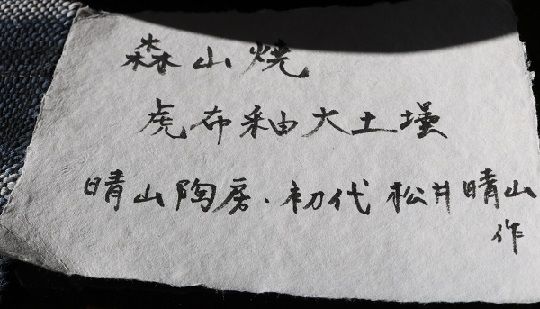 森山焼
虎布釉大土壜
晴山陶房、初代 松井晴山
作